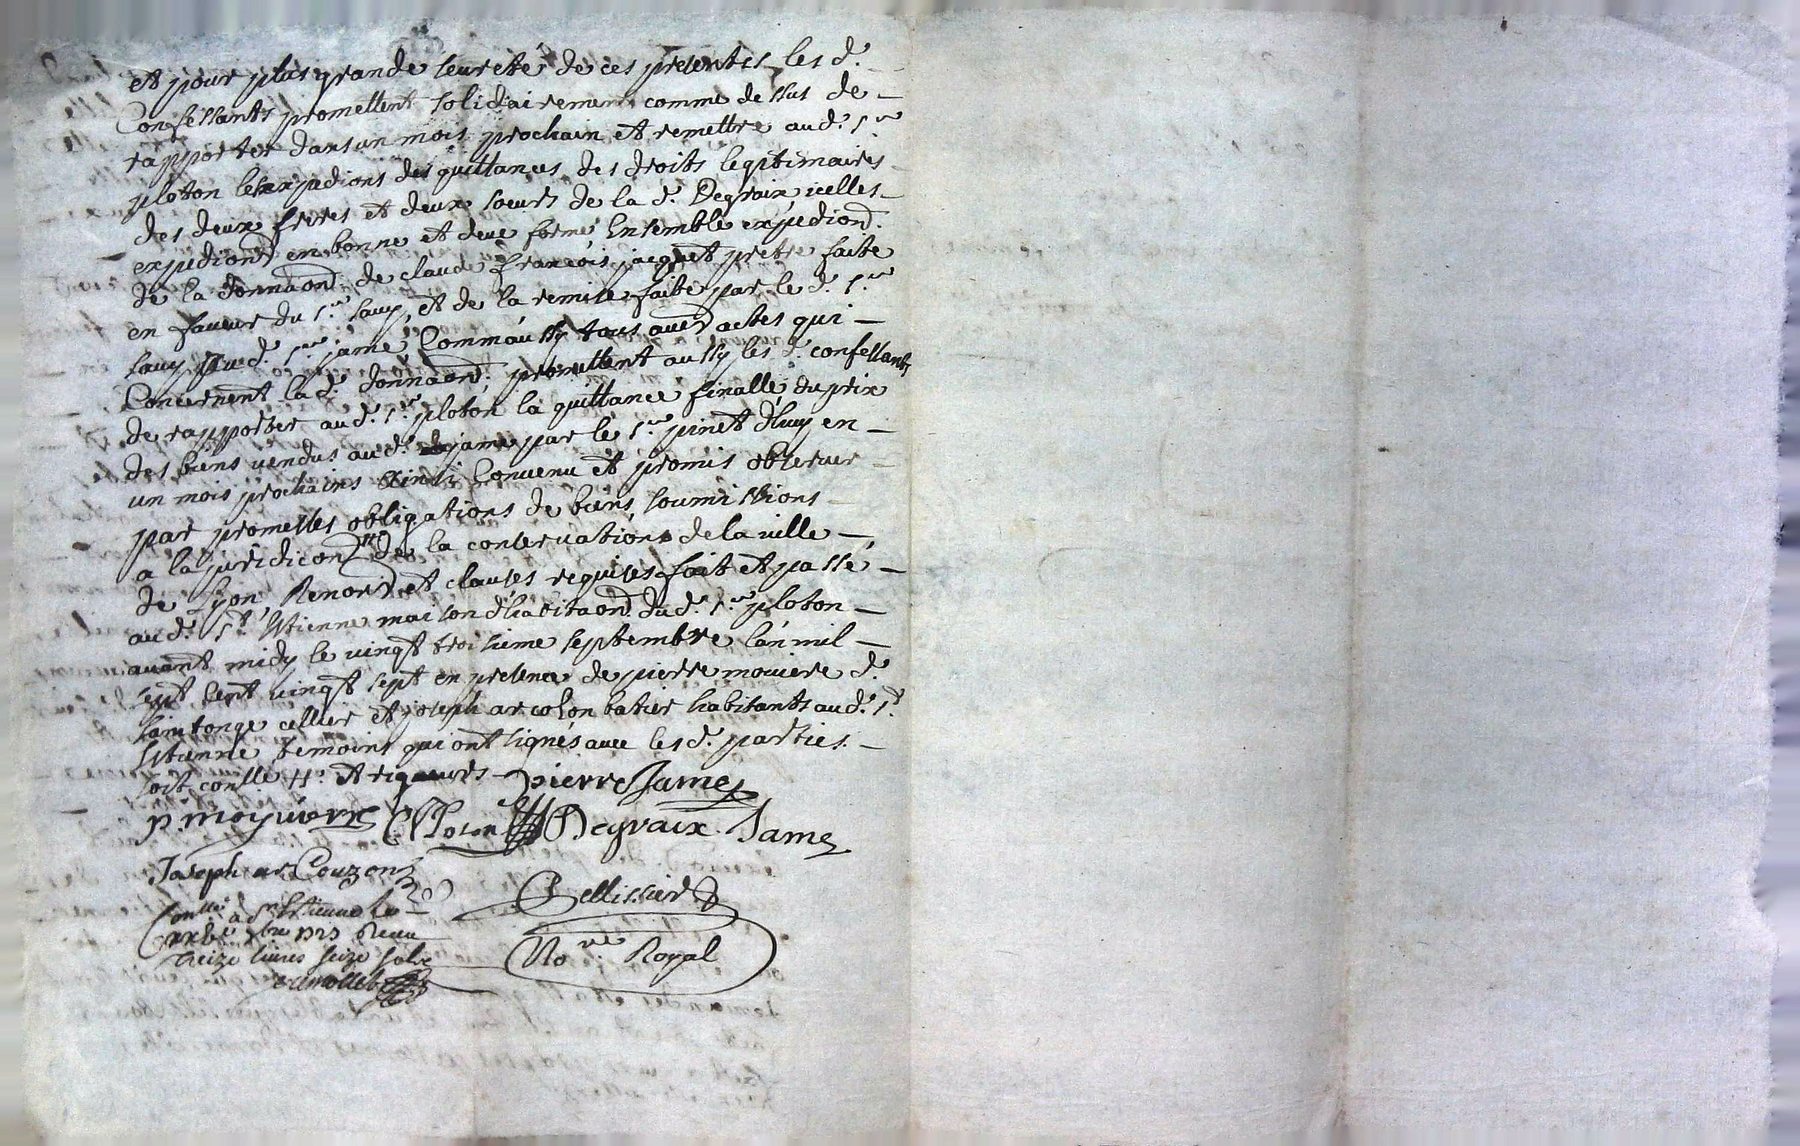 et pour plus grande seureté de ces presentes les d.
Confessants promettent solidairement comme dessus de
rapporter dans un mois prochain et remettre aud. sr
ploton les expedions des quittances des droits legitimaires
des deux freres et deux soeurs de la d. Degraix icelles
expedions en bonne et deue forme Ensemble expedions
de la donnaon de claude françois jacquet pretre faite
en faveur du sr sauy, et de la remise faite par le d. sr
sauy aud. sr jame Comm'aussy tous autres actes qui
Concernent lad. donnaon, promettent aussy les d. confessants
de rapporter aud. sr ploton la quittance finalle du prix
des biens vendus aud. jame par le sr pinet d'huy en
un mois prochains Ainsi Convenu et promis observer
par promesses obligations de biens, soumissions
a la juridicon de la conservations de la ville
de Lyon Renons et clauses requises fait et passé
aud. St Estienne maison d'habitaon dud. sr ploton
avant midy le vingt troisieme septembre l'an mil
sept cent vingt sept en presence de pierre moviere d.
saintonge cellier et joseph arcolon batier habitants aud. St
Estienne temoins qui ont signés avec les d. parties.
soit conlle et rigueurs pierre Jame
p. moyviere C Ploton Degraix Jame
Joseph ar Couzon
Conllé a St Estienne le
Recu
treize livres seize sols
Pellissier
No.re Royal